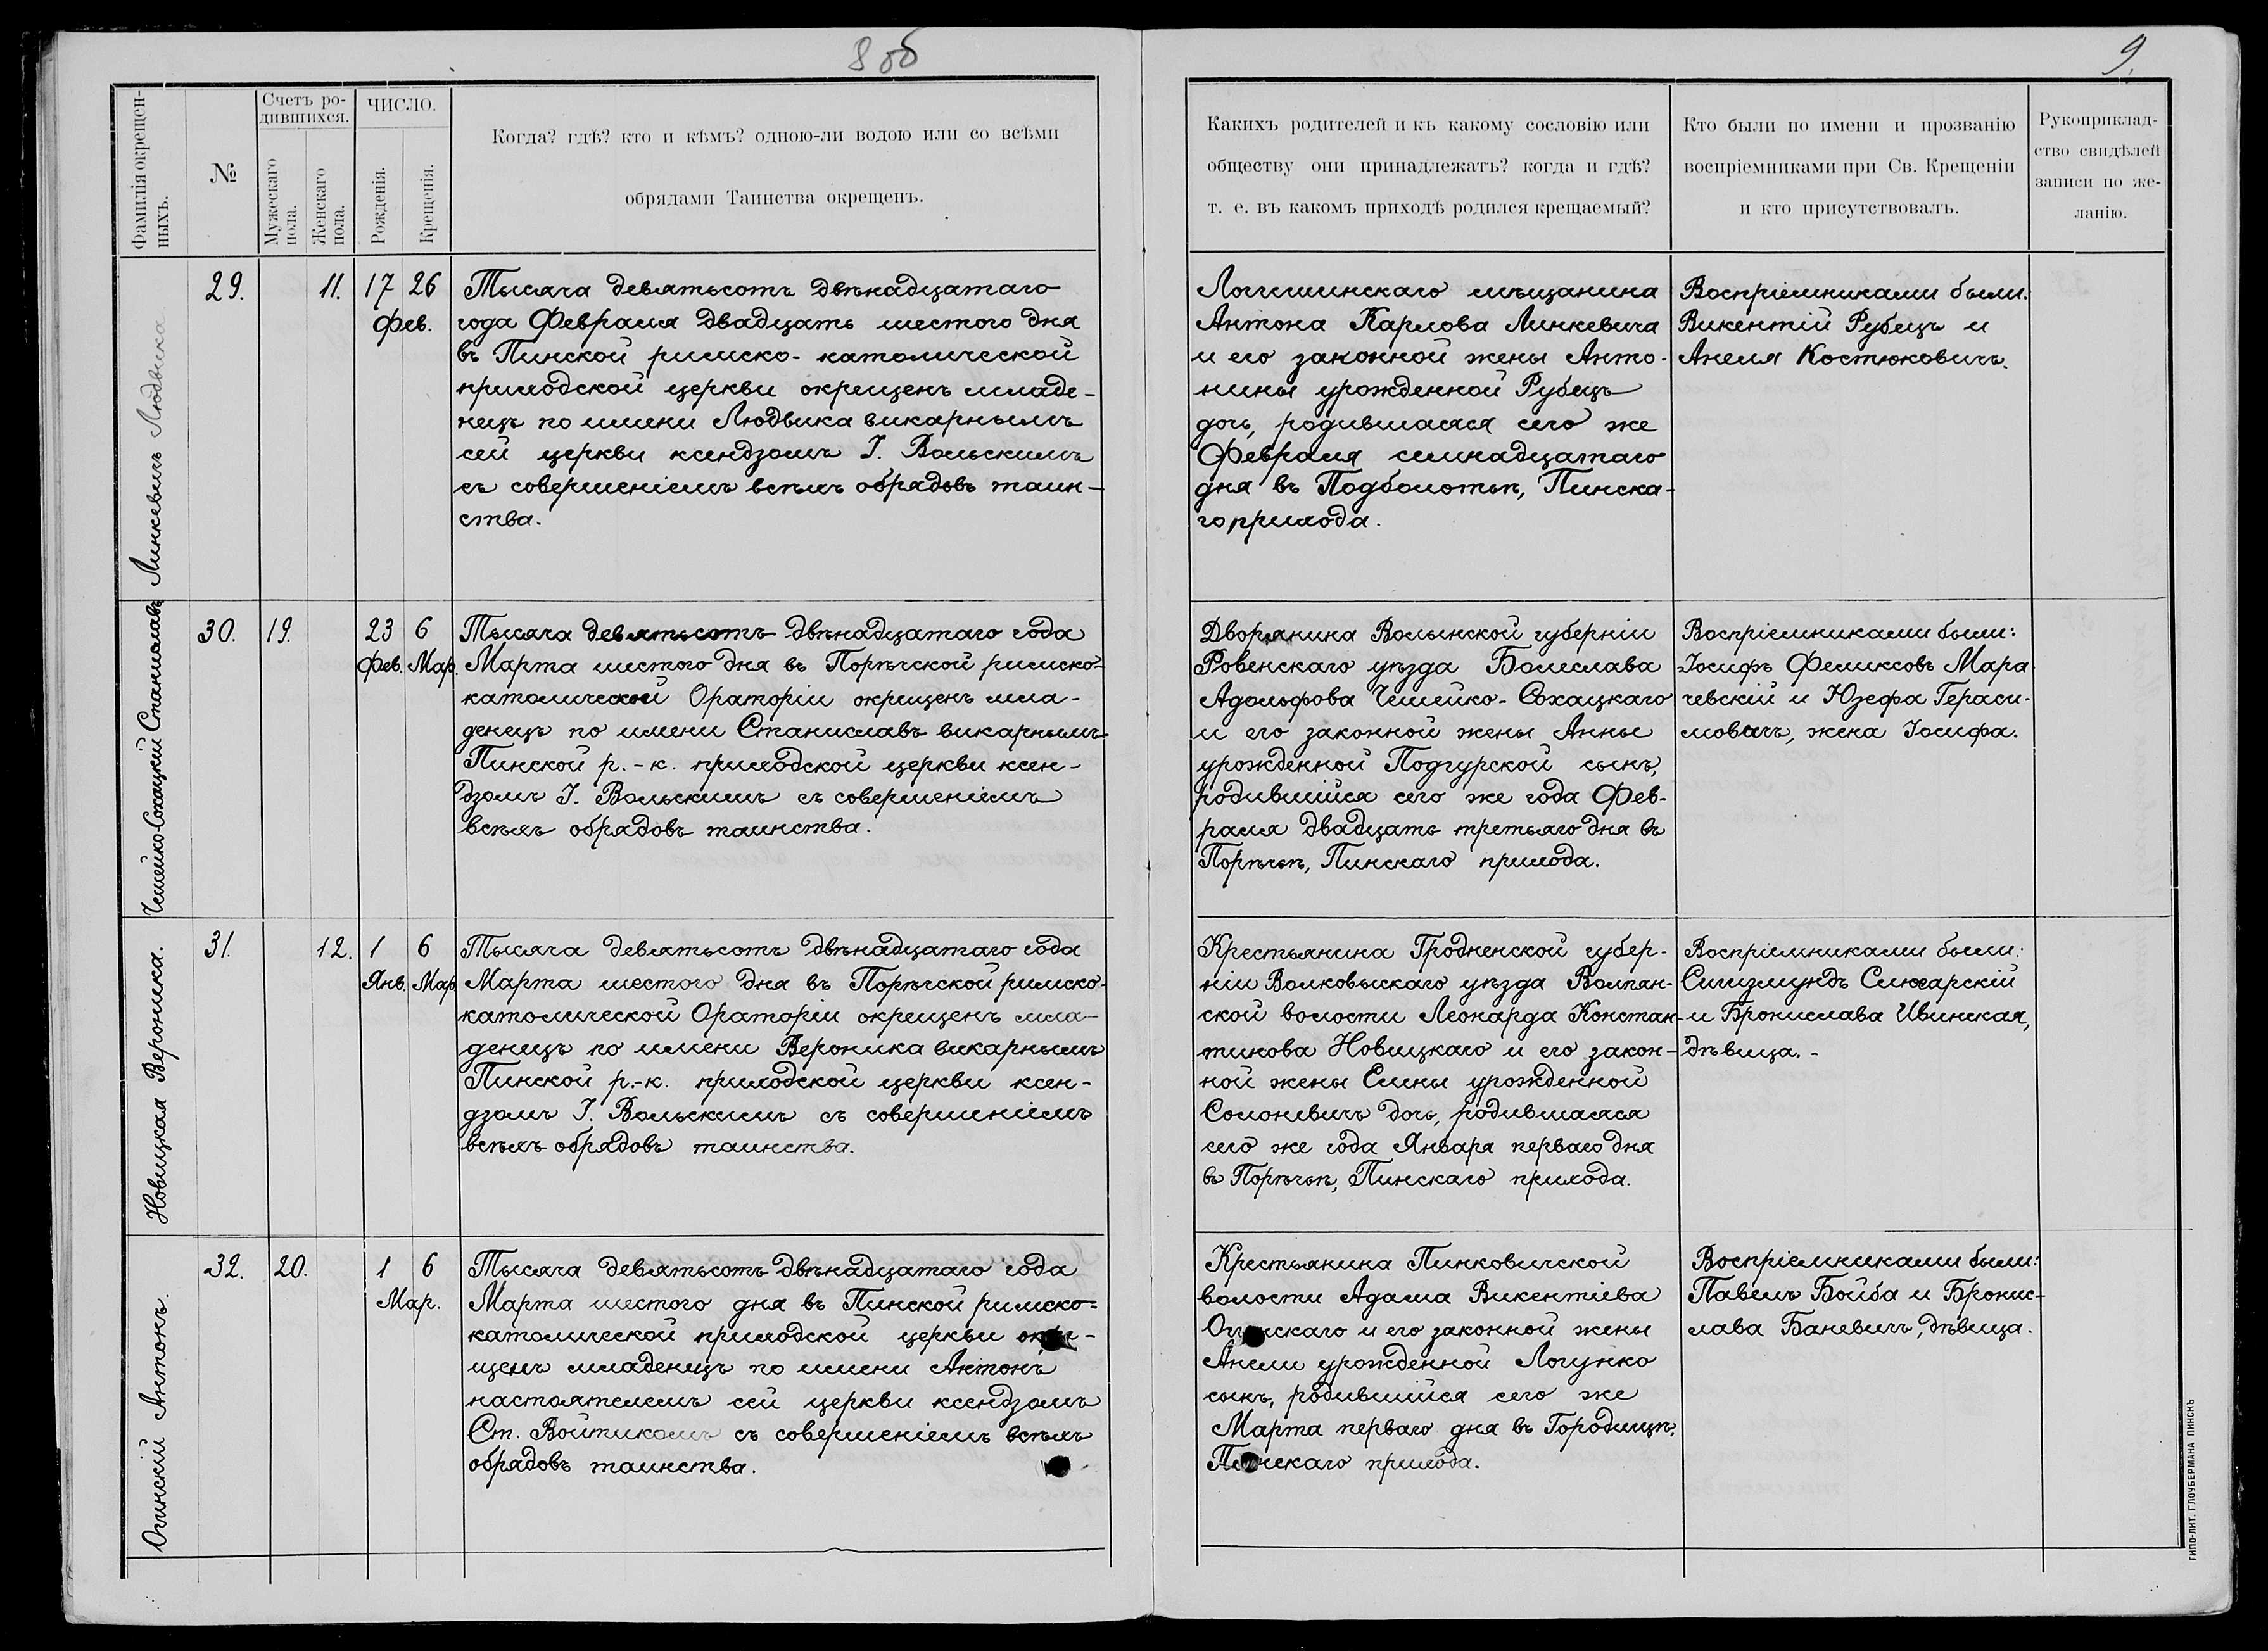 8 об
9.
Фамилія окрещен-
ныхъ.
№
Счетъ ро-
дившихся.
Мужескаго
пола.
Женскаго
пола.
ЧИСЛО.
Рожденія.
Крещенія.
Когда? гдѣ? кто и кѣмъ? одною-ли водою или со всѣми
обрядами Таинства окрещенъ.
Какихъ родителей и къ какому сословію или
обществу они принадлежатъ? когда и гдѣ?
т. е. въ какомъ приходѣ родился крещаемый?
Кто были по имени и прозванію
воспріемниками при Св. Крещеніи
и кто присутствовалъ.
Рукоприклад-
ство свидѣлей
записи по же-
ланію.
Линкевичъ Людвика
29.
11.
17 26
Фев.
Тысяча девятьсотъ двѣнадцатаго
года Февраля двадцать шестого дня
въ Пинской римско-католической
приходской церкви окрещенъ младе-
нецъ по имени Людвика викарнымъ
сей церкви ксендзомъ I. Вольскимъ
съ совершеніемъ всѣхъ обрядовъ таин-
ства.
Логишинскаго мѣщанина
Антона Карлова Линкевича
и его законной жены Анто-
нины урожденной Рубецъ
дочь, родившаяся сего же
Февраля семнадцатаго
дня въ Подболотьѣ, Пинска-
го прихода.
Воспріемниками были:
Викентій Рубецъ и
Анеля Костюковичъ.
Чешейко-Сохацкій Станиславъ
30.
19.
23 6
Фев. Мар.
Тысяча девятьсотъ двѣнадцатаго года
Марта шестого дня въ Порѣчской римско-
католической Ораторіи окрещенъ мла-
денецъ по имени Станиславъ викарнымъ
Пинской р.-к. приходской церкви ксен-
дзомъ I. Вольскимъ съ совершеніемъ
всѣхъ обрядовъ таинства.
Дворянина Волынской губерніи
Ровенскаго уѣзда Болеслава
Адольфова Чешейко-Сохацкаго
и его законной жены Анны
урожденной Подгурской сынъ,
родившійся сего же года Фев-
раля двадцать третьяго дня въ
Порѣчьѣ, Пинскаго прихода.
Воспріемниками были:
Іосифъ Феликсовъ Мара
чевскій и Юзефа Гераси-
мовичъ, жена Іосифа.
Новицкая Вероника.
31.
12.
1 6
Янв. Мар.
Тысяча девятьсотъ двѣнадцатаго года
Марта шестого дня въ Порѣчской римско-
католической Ораторіи окрещенъ мла-
денецъ по имени Вероника викарнымъ
Пинской р.-к. приходской церкви ксен-
дзомъ I. Вольскимъ съ совершеніемъ
всѣхъ обрядовъ таинства.
Крестьянина Гродненской губер-
ніи Волковыскаго уѣзда Волпян-
ской волости Леонарда Констан-
тинова Новицкаго и его закон-
ной жены Елены урожденной
Солоневичъ дочь, родившаяся
сего же года Января перваго дня
въ Порѣчьѣ, Пинскаго прихода.
Воспріемниками были:
Сигизмундъ Слюсарскій
и Бронислава Ивинская,
дѣвица.-
Огинскій Антонъ.
32.
20.
1 6
Мар.
Тысяча девятьсотъ двѣнадцатаго года
Марта шестого дня въ Пинской римско-
католической приходской церкви окре-
щенъ младенецъ по имени Антонъ
настоятелемъ сей церкви ксендзомъ
Ст. Войтикомъ съ совершеніемъ всѣхъ
обрядовъ таинства.
Крестьянина Пинковичской
волости Адама Викентіева
Огинскаго и его законной жены
Анели урожденной Логунко
сынъ, родившійся сего же
Марта перваго дня въ Городищѣ,
Пинскаго прихода.
Воспріемниками были:
Павелъ Бойба и Бронис-
лава Баневичъ, дѣвица.
ТИПО-ЛИТ. ГЛОУБЕРМАНА ПИНСКЪ